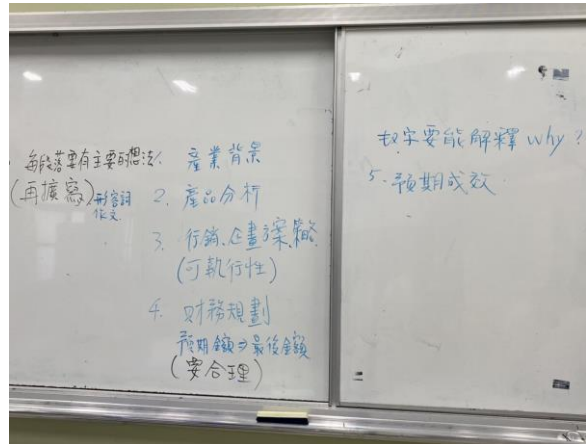 每段落要有主要的想法
(再擴寫)形容詞
作文
1. 產業背景
2. 產品分析
3. 行銷、企畫方案、策略
(可執行性)
4. 財務規劃
預期金額⇒最後金額
(要合理)
數字要能解釋 why?
5. 預期成效